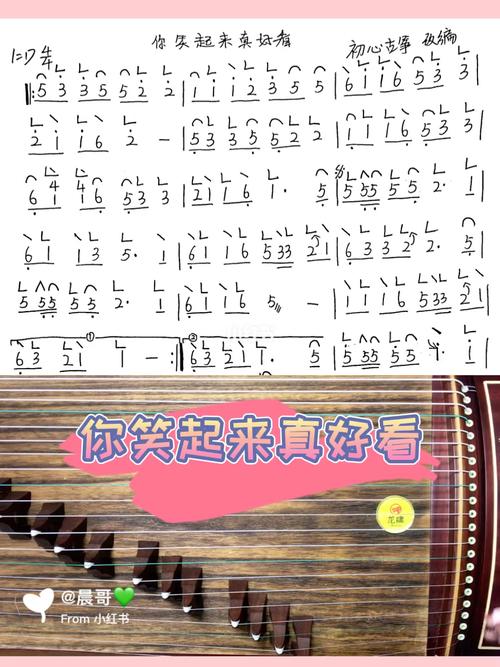 你笑起来真好看
1=D 4/4 初心古筝 改编
‖: 5 3 3 5 5 2 2 | 1 1 1 2 3 5 5 | 6 1 1 6 5 3 3
2 1 1 6 2 – | 5 3 3 5 5 2 2 | 1 1 1 6 5 3 3
6 4 4 6 5 3 3 | 2 1 1 6 1· 5 | 5 55 5 5 2· 1
6 1 1 3 5· 1 | 6 1 1 6 5 33 2 1 | 6 3 3 2 2· 5
5 55 5 5 2· 1 | 6 1 1 6 5 – | 1 1 1 6 5 33 2 1
① 6 3 2 1 1 – :‖ ② 6 3 2 1 1· 5 | 5 55 5 5 1
你笑起来真好看
龙啸
小红书
@晨哥💚
From 小红书